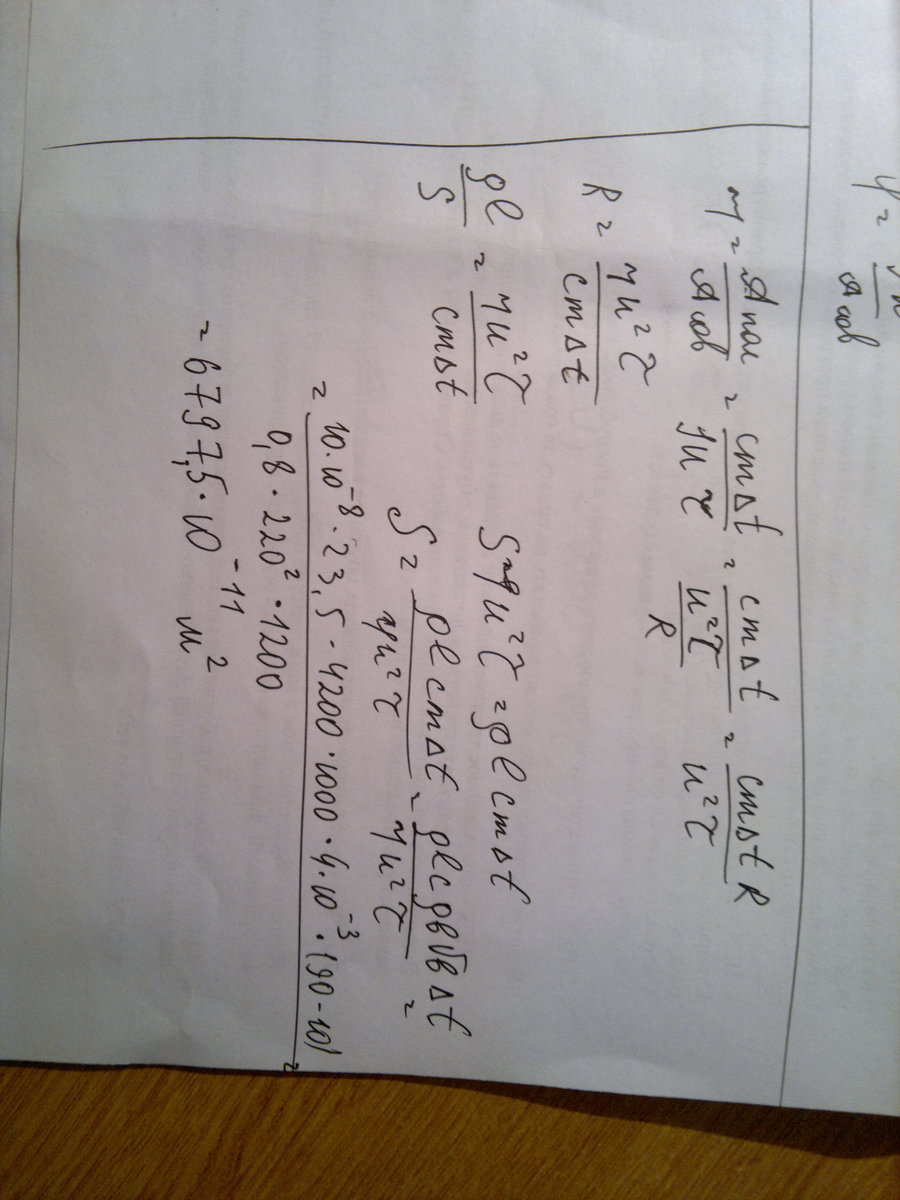 η = Aпол/Aсов = cmΔt/JUτ = cmΔt/(U²τ/R) = cmΔtR/U²τ
R = ηU²τ/cmΔt
ρl/S = ηU²τ/cmΔt
SηU²τ = ρlcmΔt
S = ρlcmΔt/ηU²τ = ρlcρвVвΔt/ηU²τ =
= 10·10⁻⁸·23,5·4200·1000·4·10⁻³·(90-10)/0,8·220²·1200 =
= 6797,5·10⁻¹¹ м²